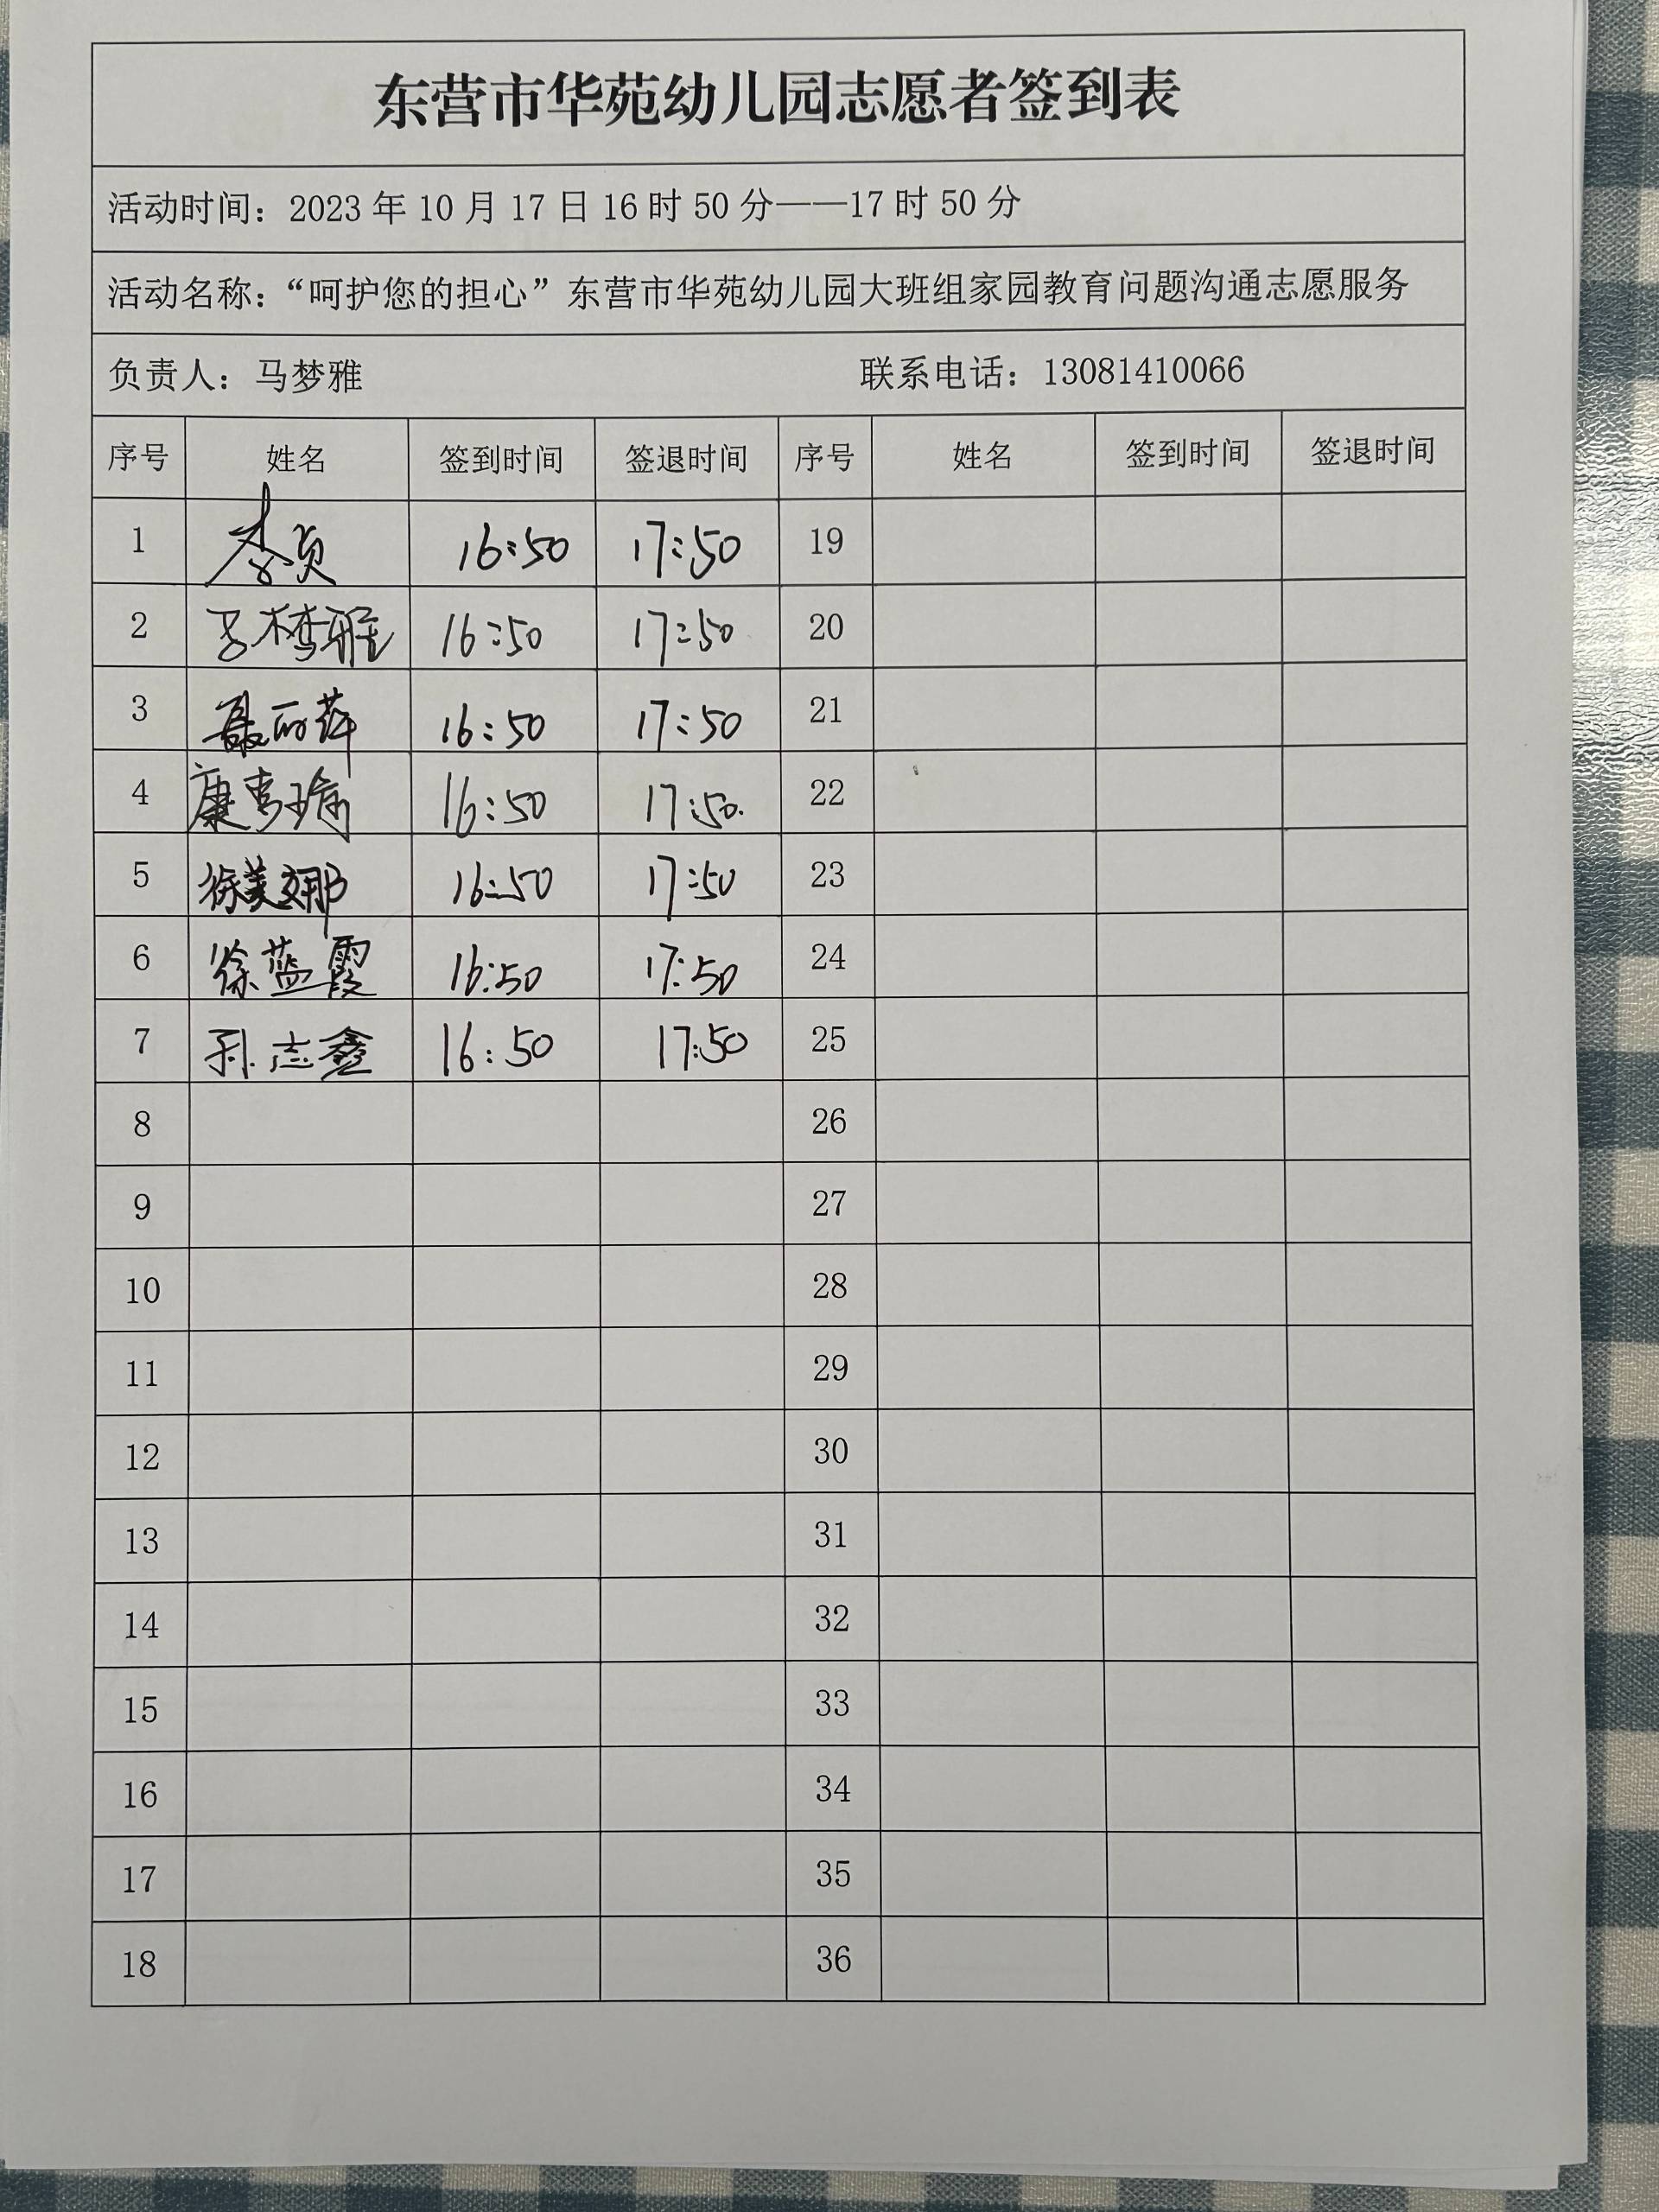 东营市华苑幼儿园志愿者签到表
活动时间：2023 年 10 月 17 日 16 时 50 分——17 时 50 分
活动名称：“呵护您的担心”东营市华苑幼儿园大班组家园教育问题沟通志愿服务
负责人：马梦雅 联系电话：13081410066
序号 姓名 签到时间 签退时间 序号 姓名 签到时间 签退时间
1 16:50 17:50 19
2 马梦雅 16:50 17:50 20
3 聂丽萍 16:50 17:50 21
4 康 瑜 16:50 17:50. 22
5 徐美娜 16:50 17:50 23
6 徐蓝霞 16:50 17:50 24
7 孙志鑫 16:50 17:50 25
8 26
9 27
10 28
11 29
12 30
13 31
14 32
15 33
16 34
17 35
18 36